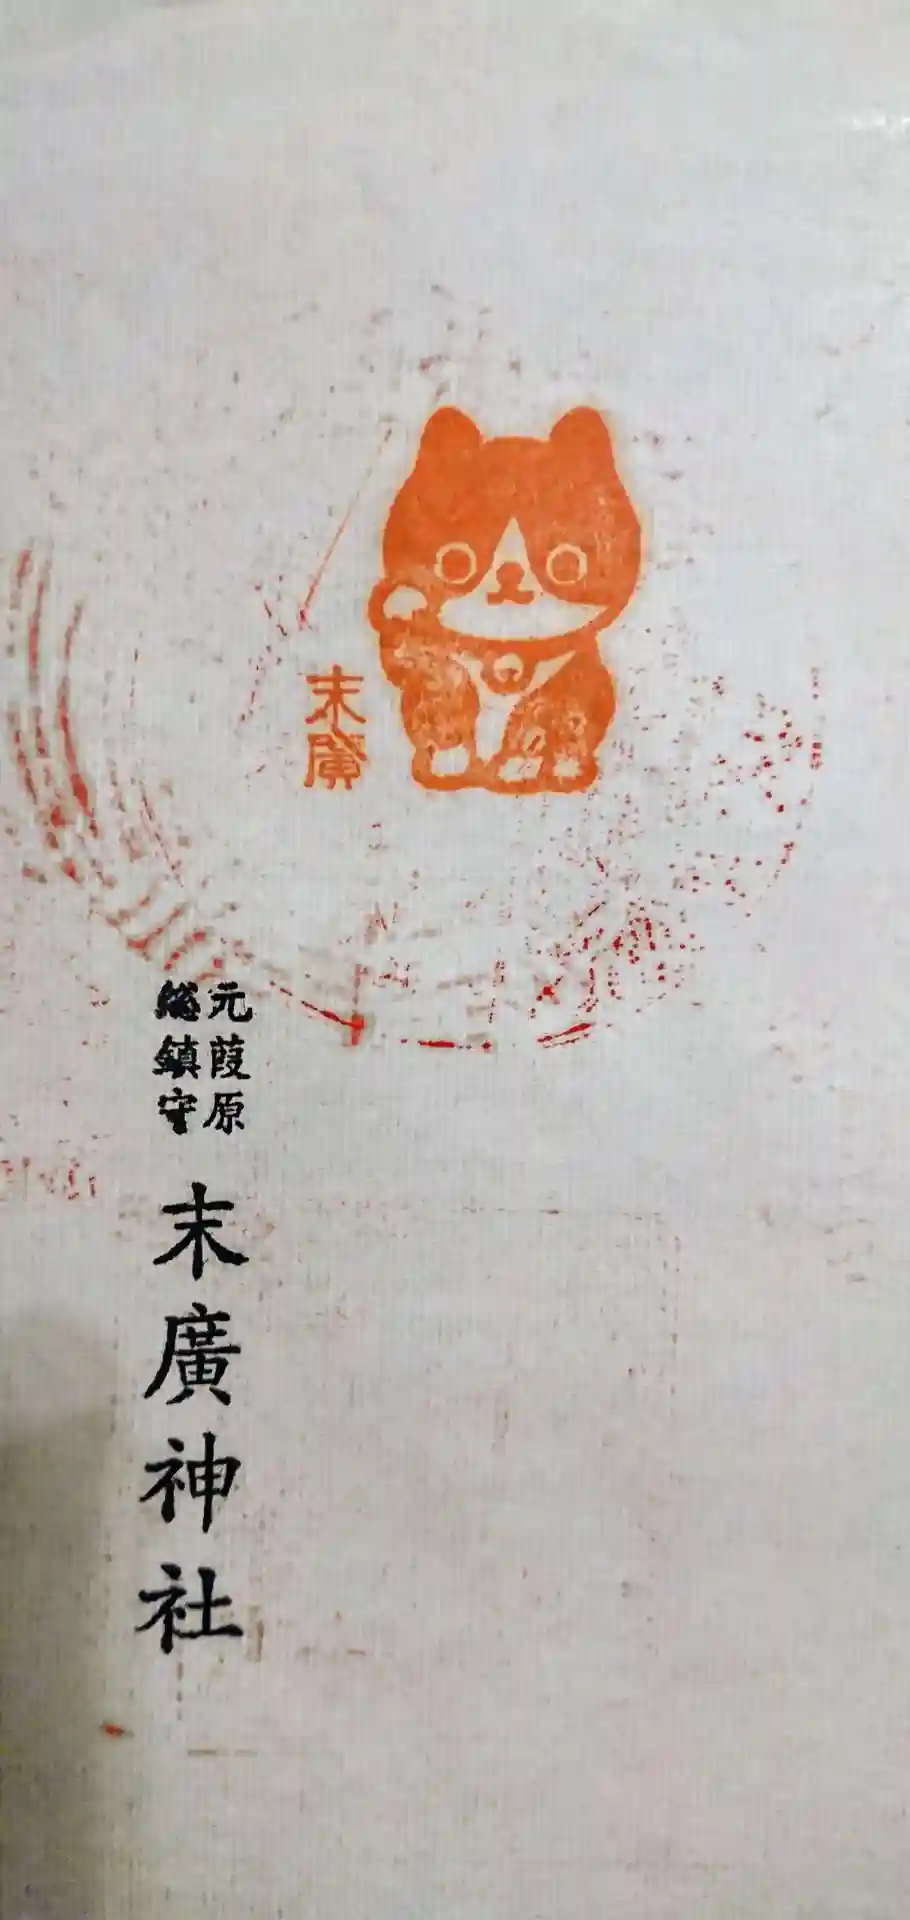 末廣
元葭原
総鎮守
末廣神社